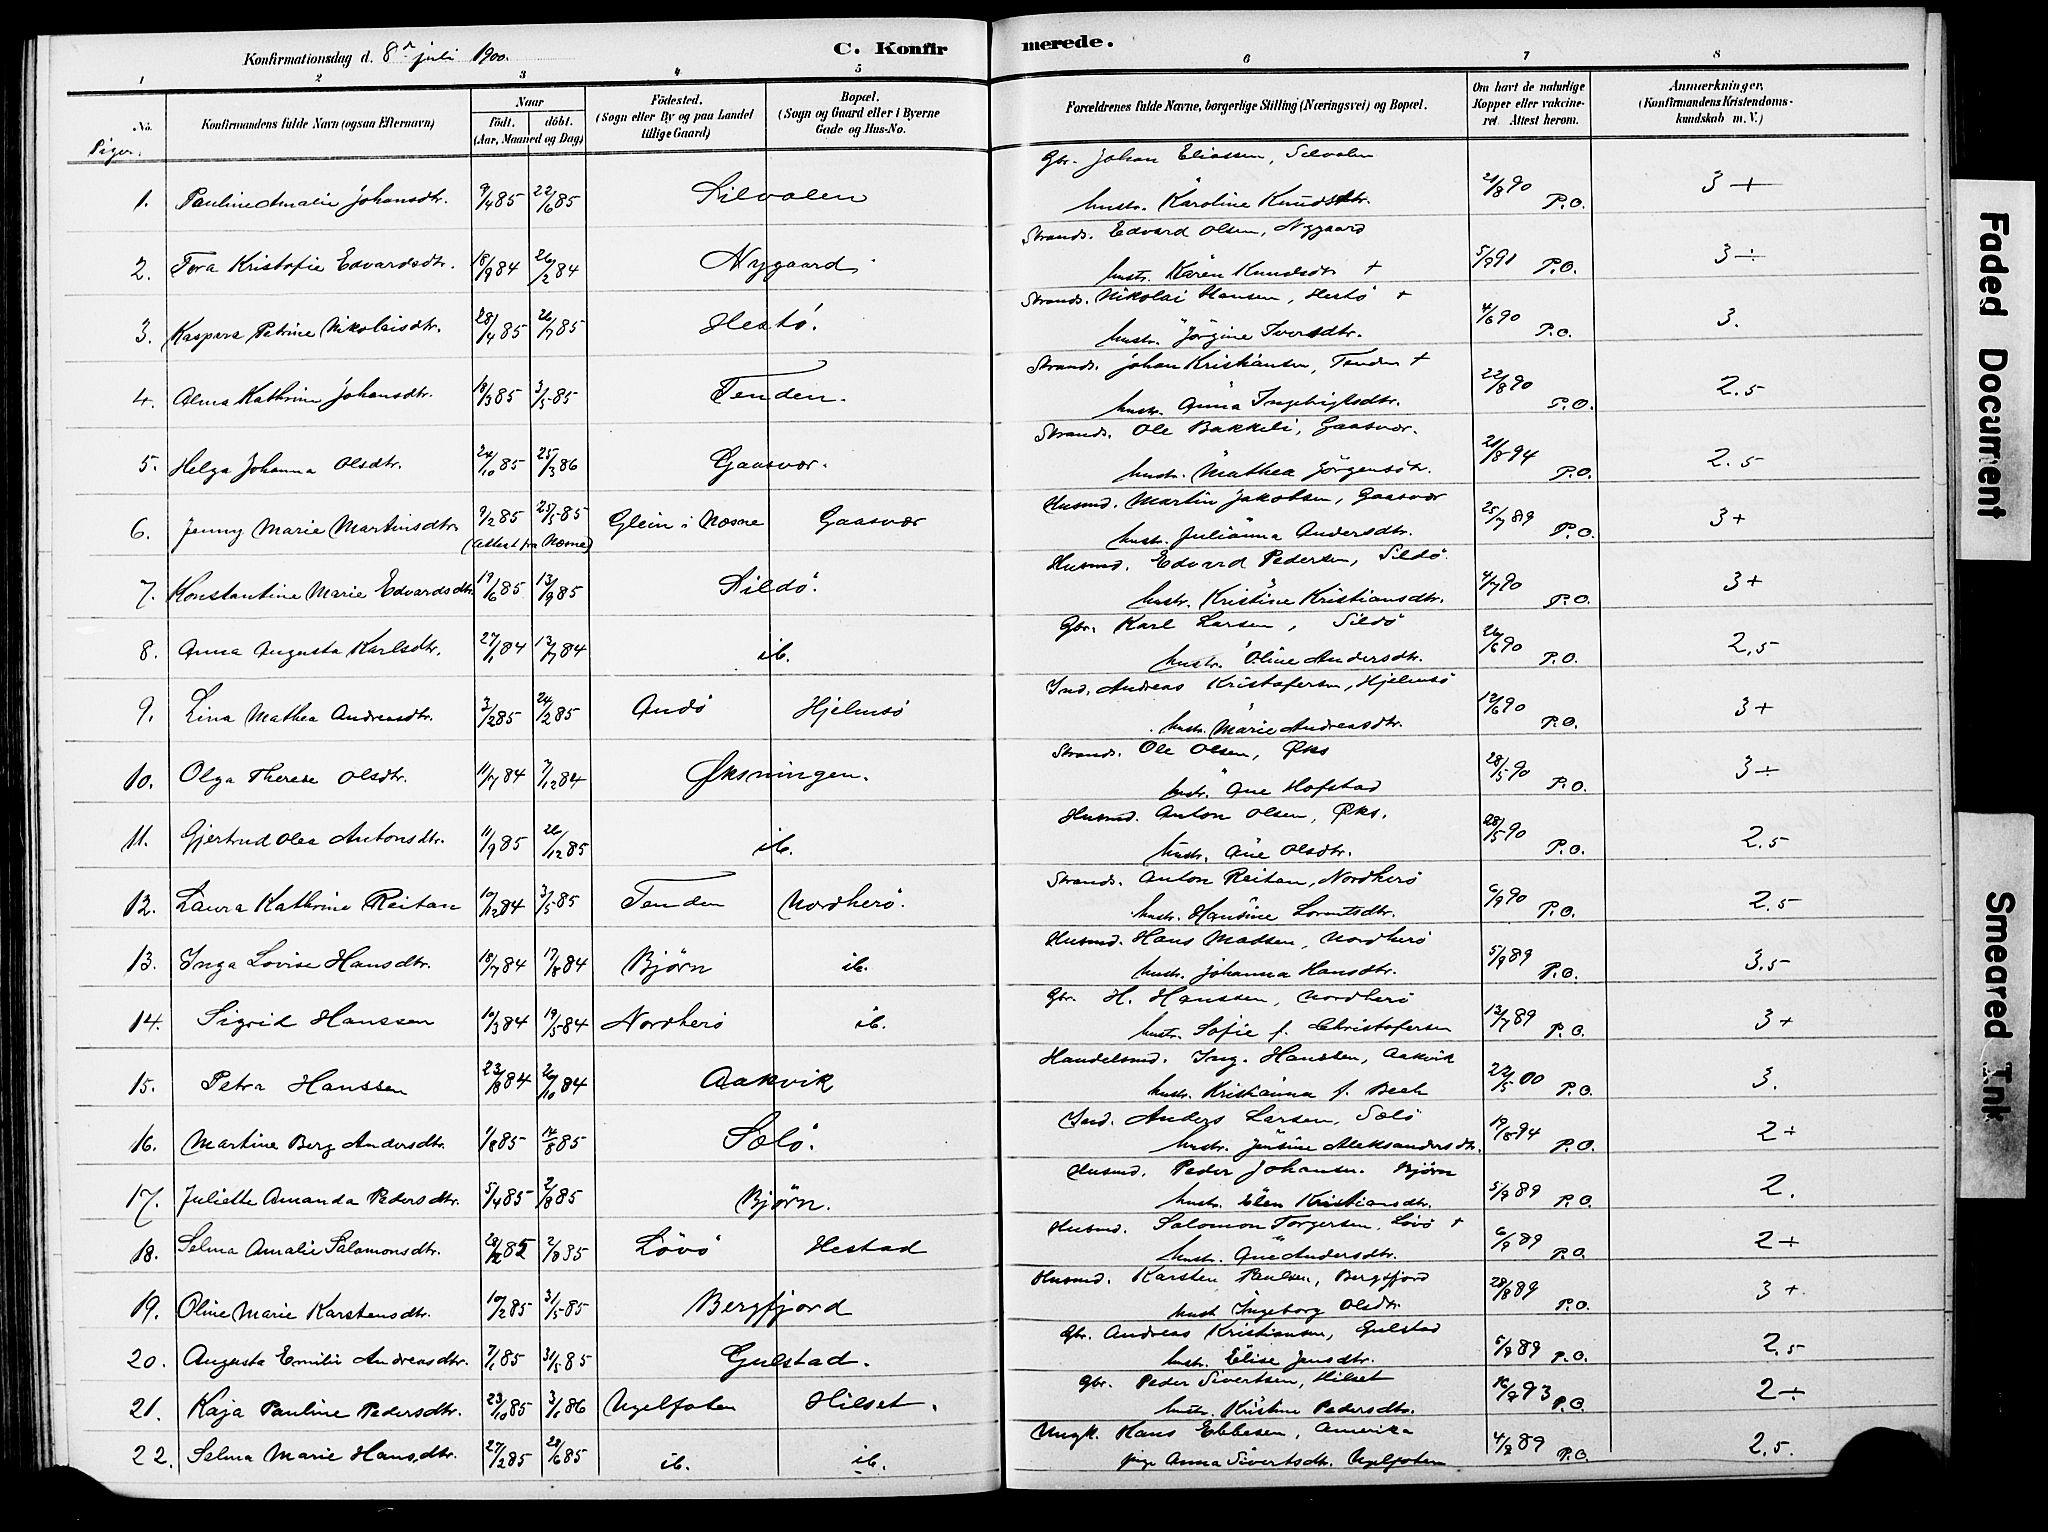 Konfirmationsdag d. 8de juli 1900.
C. Konfirmerede.
1 2 3 4 5 6 7 8
No. Konfirmandens fulde Navn (ogsaa Efternavn) Naar født. døbt. (Aar, Maaned og Dag) Födested. (Sogn eller By og paa Landet tillige Gaard) Bopæl. (Sogn og Gaard eller i Byerne Gade og Hus-No. Forældrenes fulde Navne, borgerlige Stilling (Næringsvei) og Bopæl. Om havt de naturlige Kopper eller vakcineret. Attest herom. Anmærkninger, (Konfirmandens Kristendomskundskab m. V.)
Piger.
Gbr. Johan Eliassen, Silvalen
1. Pauline Amalie Johansdtr. 9/4 85 22/6 85 Silvalen hustr. Karoline Knudsdtr. 21/8 90 P.O. 3 +
Strands. Edvard Olsen, Nygaard
2. Tora Kristofie Edvardsdtr. 18/9 84 26/2 84 Nygaard hustr. Karen Knudsdtr + 5/9 91 P.O. 3 ÷
Strands. Nikolai Hansen, Hestö +
3. Kaspara Petrine Nikolaisdtr. 28/4 85 26/7 85 Hestö. hustr. Jörgine Iversdtr. 4/6 90 P.O. 3.
Strands. Johan Kristiansen, Tenden +
4. Alma Kathrine Johansdtr. 18/3 85 3/5 85 Tenden. hustr. Anna Ingebrigtsdtr. 22/8 90 P.O. 2.5
Strands. Ole Bakkeli, Gaasvær.
5. Helga Johanna Olsdtr. 24/10 85 25/3 86 Gaasvær. hustr. Mathea Jörgensdtr. 21/8 94 P.O. 2.5
Husmd. Martin Jakobsen, Gaasvær
6. Jenny Marie Martinsdtr 9/2 85 25/5 85 Glein i Næsne Gaasvær hustr. Julianna Andersdtr. 25/7 89 P.O. 3+
(Attest fra Næsne)
Husmd. Edvard Pedersen, Sildö.
7. Konstantine Marie Edvardsdtr 19/6 85 13/9 85 Sildö. hustr. Kristine Kristiansdtr. 4/7 90 P.O. 3+
Gbr. Karl Larsen, Sildö
8. Anna Augusta Karlsdtr. 27/1 84 13/7 84 ib. hustr. Oline Andersdtr. 26/6 90 P.O. 2,5
Ind. Andreas Kristofersen, Hjelmsö
9. Lina Mathea Andreasdtr. 3/2 85 24/2 85 Andö Hjelmsö hustr. Marie Andreasdtr. 12/6 90 P.O. 3+
Strands. Ole Olsen, Øks
10. Olga Therese Olsdtr. 11/7 84 7/12 84 Øksningen. hustr. Ane Hofstad 28/5 90 P.O. 3÷
Husmd. Anton Olsen, Øks.
11. Gjertrud Olea Antonsdtr. 11/9 85 26/12 85 ib. hustr. Ane Olsdtr. 28/5 90 P.O. 2.5
Strands. Anton Reitan, Nordherö
12. Laura Kathrine Reitan 10/12 84 3/5 85 Tenden Nordherö. hustr. Hansine Lorentsdtr. 6/9 90 P.O. 2.5
Husmd. Hans Madsen, Nordherö
13. Inga Lovise Hansdtr. 18/7 84 17/8 84 Bjørn ib. hustr. Johanna Hansdtr. 5/9 89 P.O. 3.5
Gbr. H. Hanssen, Nordherö
14. Sigrid Hanssen 10/3 84 19/5 84 Nordherö ib. hustr. Sofie f. Christofersen 13/7 89 P.O. 3+
Handelsmd. Ing. Hanssen, Aakvik
15. Petra Hanssen 23/8 84 26/10 84 Aakvik hustr. Kristianna f. Bech 22/5 00 P.O. 3.
Ind. Anders Larsen, Sölö
16. Martine Berg Andersdtr. 1/8 85 14/8 85 Sölö. hustr. Jensine Aleksandersdtr. 19/8 94 P.O. 2+
Husmd. Peder Johansen. Bjørn
17. Juliette Amanda Pedersdtr. 5/4 85 2/8 85 Bjørn. hustr. Elen Kristiansdtr. 5/9 89 P.O. 2.
Husmd. Salomon Torgersen, Lövö +
18. Selma Amalie Salamonsdtr. 85 2/8 85 Lövö Hestad hustr. Ane Andersdtr. 6/9 89 P.O. 2÷
Husmd. Karsten Paulsen, Bergfjord
19. Oline Marie Karstensdtr. 10/2 85 31/5 85 Bergfjord hust Ingeborg Olsdtr. 28/8 89 P.O. 3 +
Gbr. Andreas Kristiansen, Gulstad
20. Augusta Emilie Andreasdtr. 7/1 85 31/5 85 Gulstad. hustr. Elise Jensdtr. 5/9 89 P.O. 2,5
Gbr. Peder Sivertsen, Hilset
21. Kaja Pauline Pedersdtr. 23/10 85 3/1 86 Ugelfoten Hilset. hustr. Kristine Pedersdtr. 16/9 93 P.O. 2÷
Ungk. Hans Ebbesen, Amerika
22. Selma Marie Hansdtr. 27/2 85 28/6 85 ib. ib. pige Anna Sivertsdtr. Ugelfoten 4/9 89 P.O. 2,5.
Faded Document
Smeared Ink